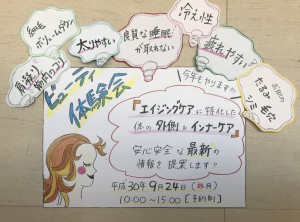 髪のボリュームダウン
太りやすい
良質な睡眠
が取れない
冷え性
疲れやすい
お肌の
たるみ 毛穴
シミ
肩凝り
筋肉コリコリ
ビューティ
体験会
今年もやります!!
「エイジングケアに特化した
体の外側とインナーケア」
安心安全な最新の
情報を提案します!!
平成30年9月24日(祝月)
10:00〜15:00 【予約制】